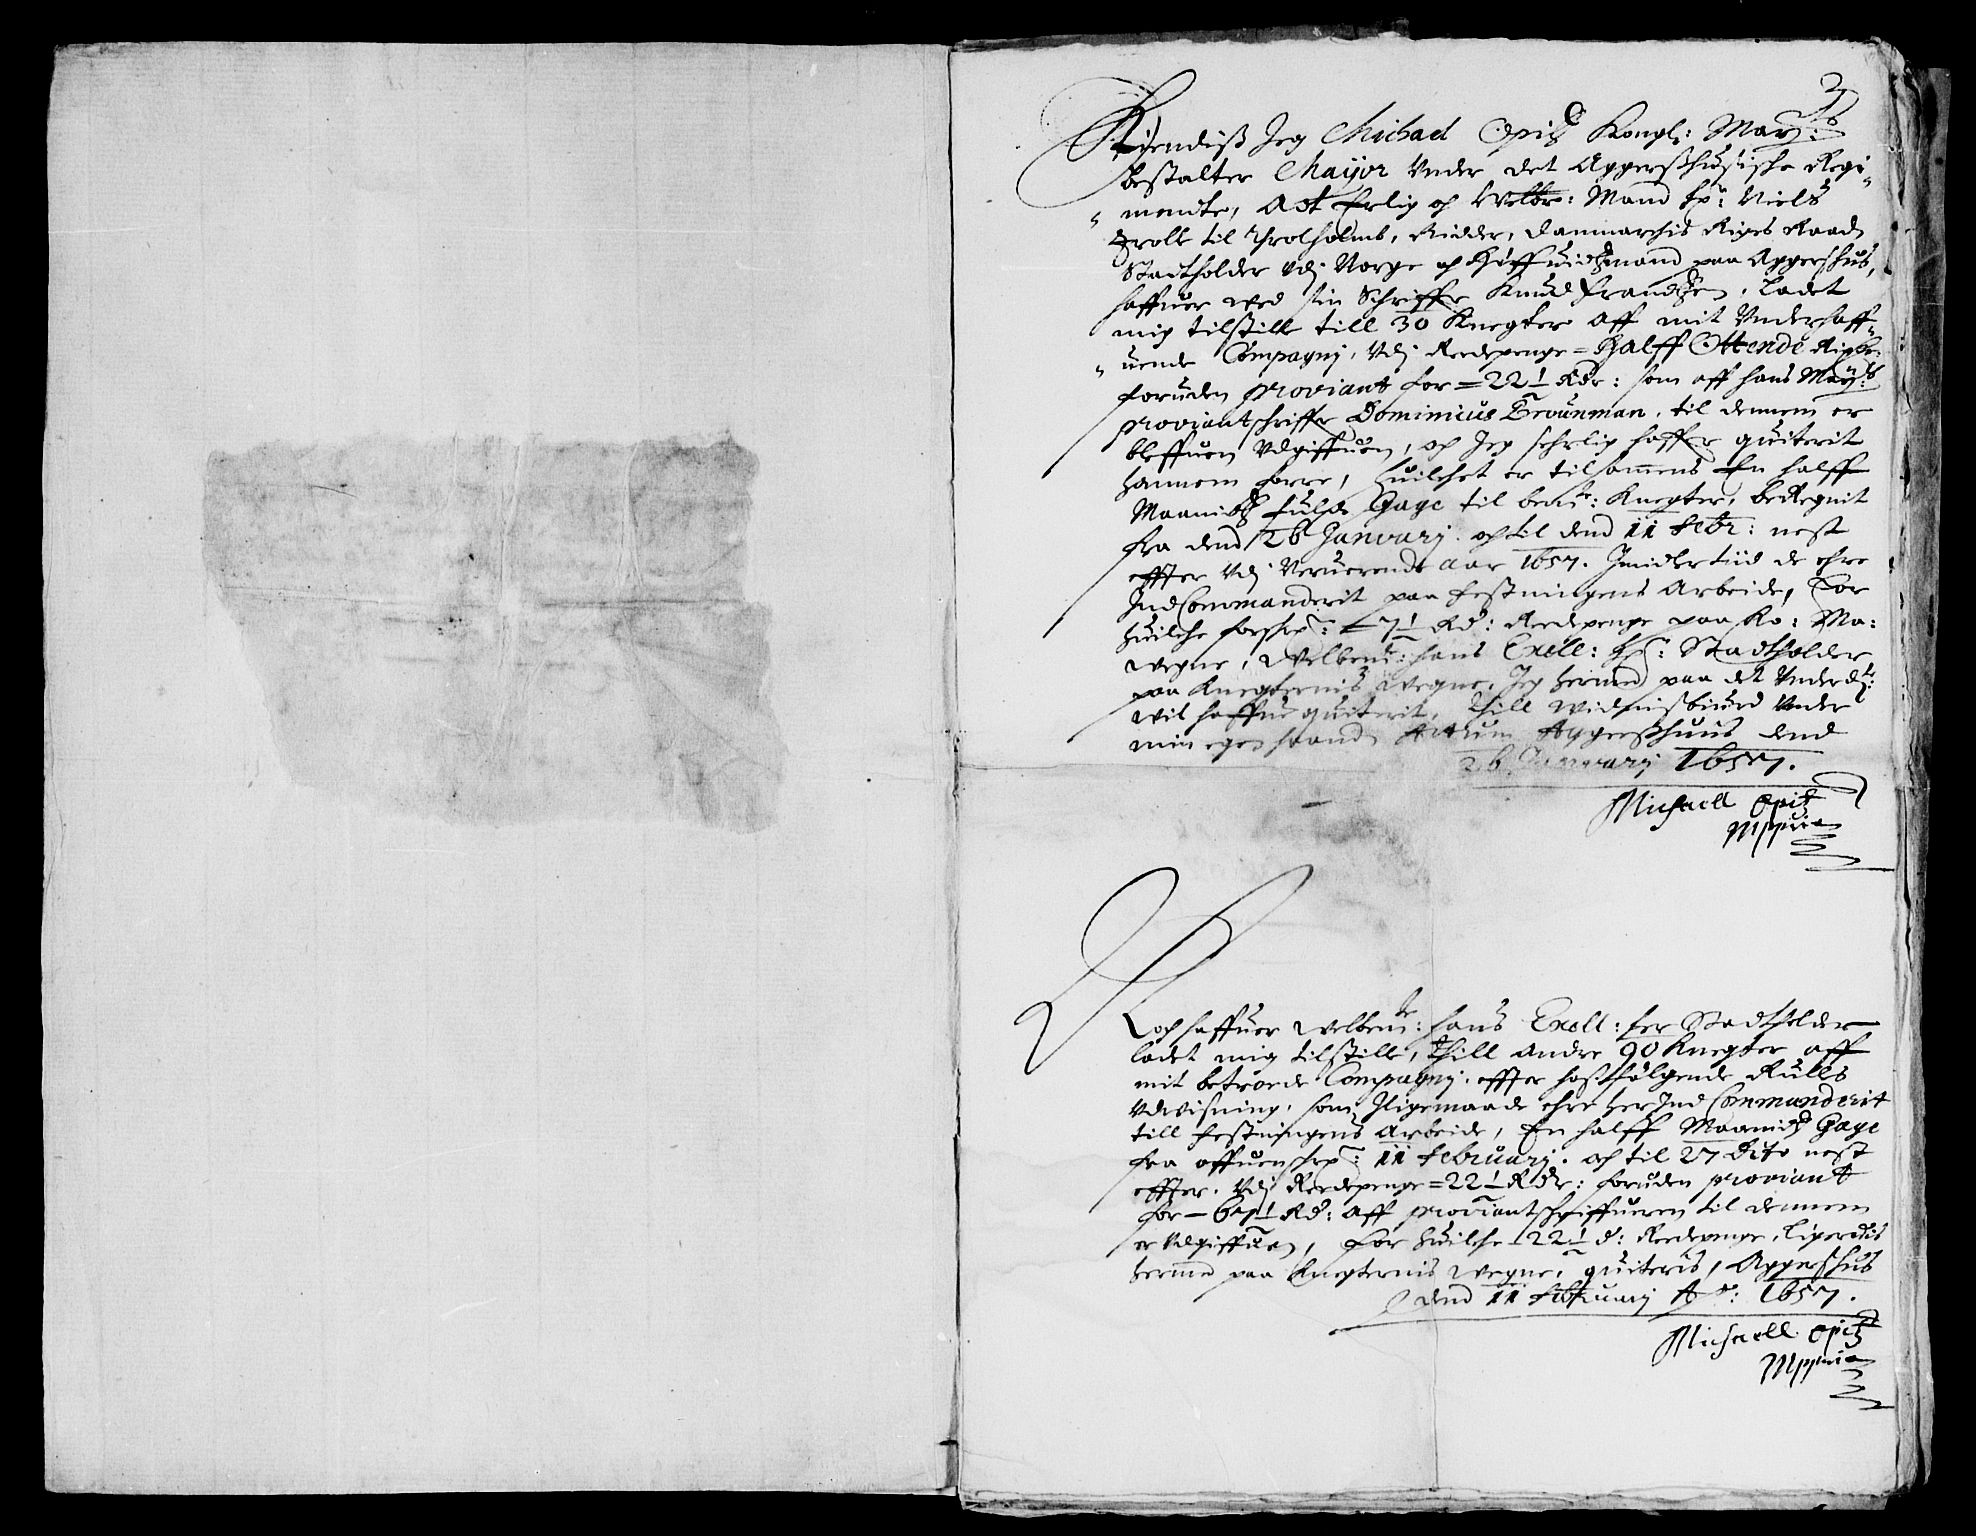 Kiendiß Jeg Michael Opitz Kongl: May:ts
bestalter Mayor Vnder det Aggerßhusische Regi-
mendte, Att Erlig och Welbr: Mand Hr: Niels
Trolle til Trolholmb, Ridder, Danmarchis Riges Raad
Stadtholder vdj Norge och Høffuidtzmand paa Aggershus,
haffuer ved sin Schriffer Knud Frandtzen, ladet
mig tilstille till 30 Knegter aff mit Vnderhaff-
uende Compagnj, Vdj Reedepenge = Halff Ottende Rixdr
foruden proviant for = 22½ Rdr: som aff hans May:ts
proviantschriffr Dominicus Brounman, til dennem er
bleffuen Vdgiffuen, och Jeg sehrlig haffer quiterit
hannem forre, huilchet er tilsammens En halff
Maanidtz fulde Gage til bemte: Knegter, beregnit
fra dend 26 Januarj och til dend 11 Febr: nest
effter Vdj Neruerende aar 1657. Imidlertiid de ehre
Ind Commanderit paa Festningens Arbeide, For
huilche forschr: 7½ Rd: Reedepenge paa Ko: Ma:
wegne, Welbemte: hans Excell: Hr: Stadtholder
paa Knegternis wegne, Jeg hermed paa det Vnderd:
wil haffue quiterit, Till widnisbiurd Vnder
min egen haand Actum Aggerßhuus dend
26 Januarj 1657.
Michaell Opitz
Mppria
Och haffuer welbemte: hans Excell: her Stadtholder
ladet mig tilstille, till andre 90 Knegter aff
mit betroede Compagnj, effter hosfølgende Rulls
Vdvisning, som Jligemaade ehre her Ind Commanderit
till Festningens Arbeide, En halff Maanidtz Gage
fra offuenschr: 11 Februarj. och til 27 dito nest
effter, Vdj Reedepenge = 22½ Rdr: foruden proviant
for — 67½ Rd: aff proviantschriffueren til dennem
er Vdgiffuen, For huilche 22½ d: Reedepenge, ligeredis
hermed paa Knegternis wegne, quiteris, Aggershus
dend 11 Februarj Ao: 1657.
Michaell Opitz
Mppria